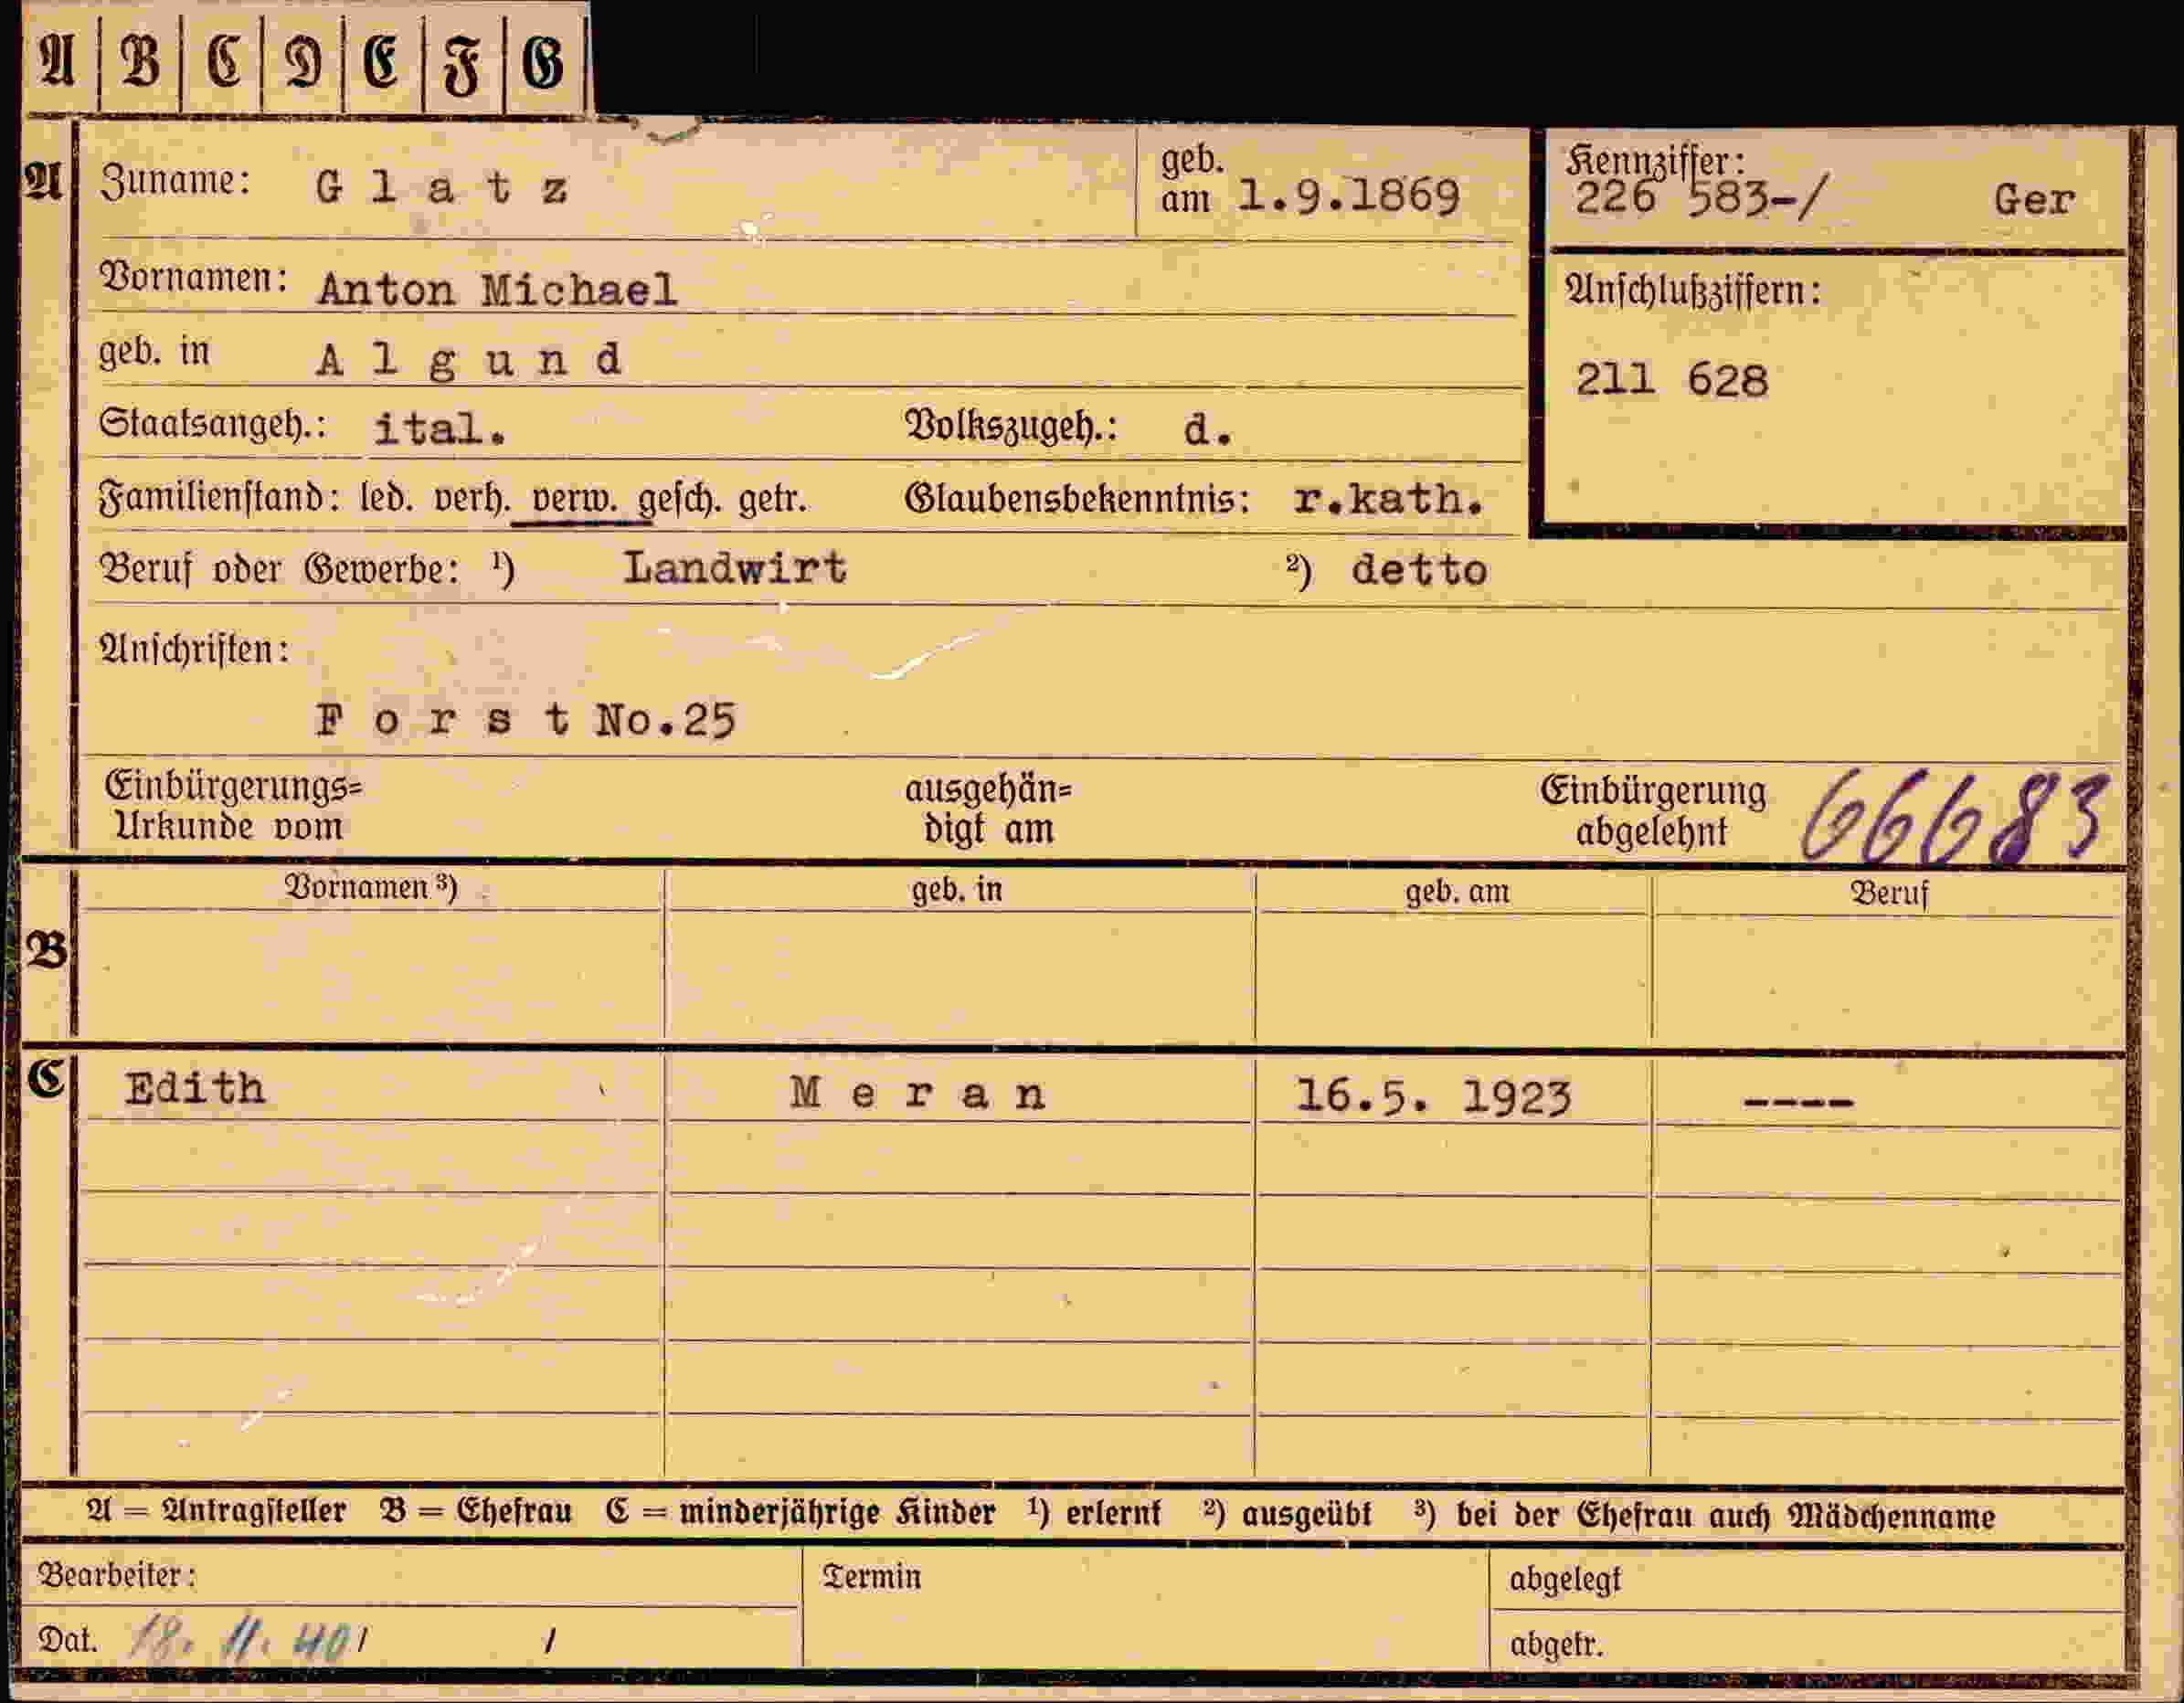 A B C D E F G
A Zuname: Glatz geb. am 1.9.1869 Kennziffer: 226 583-/ Ger
Vornamen: Anton Michael Anschlußziffern:
geb. in Algund 211 628
Staatsangeh.: ital. Volkszugeh.: d.
Familienstand: led. verh. verw. gesch. getr. Glaubensbekenntnis: r.kath.
Beruf oder Gewerbe: ¹) Landwirt ²) detto
Anschriften:
Forst No.25
Einbürgerungs= ausgehän= Einbürgerung 66683
Urkunde vom digt am abgelehnt
Vornamen ³) geb. in geb. am Beruf
B
C Edith Meran 16.5. 1923 ----
A = Antragsteller B = Ehefrau C = minderjährige Kinder ¹) erlernt ²) ausgeübt ³) bei der Ehefrau auch Mädchenname
Bearbeiter: Termin abgelegt
Dat. 18. 11. 40 / / abgetr.